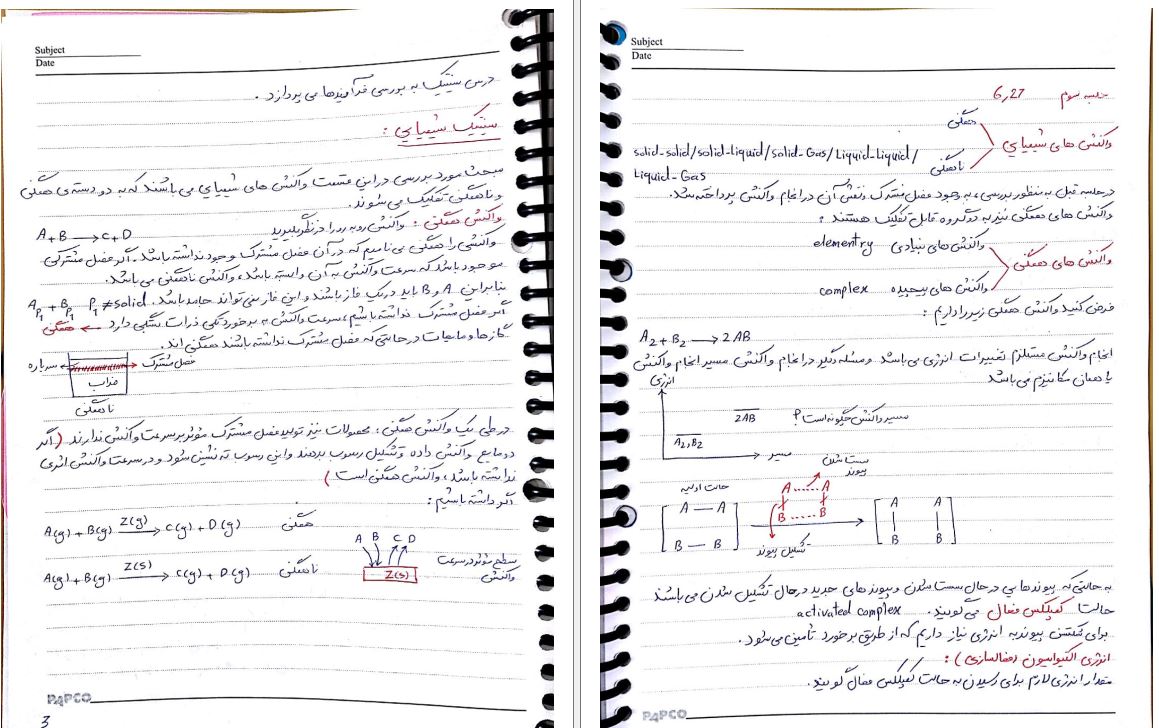 Subject
Date
درس سینتیک به بررسی فرآیندها می پردازد .
سینتیک شیمیایی :
مبحث مورد بررسی در این قسمت واکنش های شیمیایی می باشند که به دو دسته ی همگنی
و ناهمگنی تفکیک می شوند.
واکنش همگنی : واکنش روبه رو را در نظر بگیرید A + B → C + D
واکنشی را همگنی می نامیم که در آن فصل مشترک وجود نداشته باشد. اگر فصل مشترکی
موجود باشد که سرعت واکنش به آن وابسته باشد، واکنش ناهمگنی می باشد.
بنابراین A و B باید در یک فاز باشند و این فاز نمی تواند جامد باشد. A P1 + B P1 P1 ≠ solid
اگر فصل مشترک نداشته باشیم، سرعت واکنش به برخورد تکی ذرات بستگی دارد ← همگنی
گازها و مایعات در حالتی که فصل مشترک نداشته باشند همگنی اند.
سرباره فصل مشترک
مذاب
ناهمگنی
در طی یک واکنش همگنی، محصولات نیز تولید فصل مشترک مؤثر بر سرعت واکنش ندارند (اگر
دو مایع واکنش داده و تشکیل رسوب بدهند و این رسوب ته نشین شود و در سرعت واکنش اثری
نداشته باشد، واکنش همگنی است)
اگر داشته باشیم :
A(g) + B(g) Z(g)→ C(g) + D(g) همگنی
A B C D
سطح مؤثر در سرعت
واکنش
A(g) + B(g) Z(s)→ C(g) + D(g) ناهمگنی
Z(s)
PAPCO
3
Subject
Date
جلسه سوم 6,27
همگنی
واکنش های شیمیایی
ناهمگنی solid-solid/solid-Liquid/solid-Gas/Liquid-Liquid/
Liquid-Gas
در جلسه قبل به منظور بررسی، به وجود فصل مشترک و نقش آن در انجام واکنش پرداخته شد.
واکنش های همگنی نیز به دو گروه قابل تفکیک هستند :
واکنش های بنیادی elementry
واکنش های همگنی
واکنش های پیچیده complex
فرض کنید واکنش همگنی زیر را داریم :
A2 + B2 → 2AB
انجام واکنش مستلزم تغییرات انرژی می باشد و مسئله دیگر در انجام واکنش مسیر انجام واکنش
یا همان مکانیزم می باشد
انرژی
2AB مسیر واکنش چگونه است؟
A2,B2
مسیر
سست شدن
پیوند
حالت اولیه
A — A A ...... A A A
B — B B ...... B B B
تشکیل پیوند
به حالتی که پیوندهایی در حال سست شدن و پیوندهای جدید در حال تشکیل شدن می باشند
حالت کمپلکس فعال می گویند. activated complex
برای شکستن پیوند به انرژی نیاز داریم که از طریق برخورد تأمین می شود.
انرژی اکتیواسیون (فعالسازی) :
مقدار انرژی لازم برای رسیدن به حالت کمپلکس فعال گویند.
PAPCO